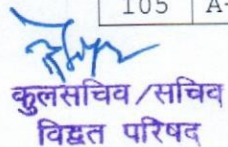 105 A-
कुलसचिव/सचिव
विद्वत परिषद